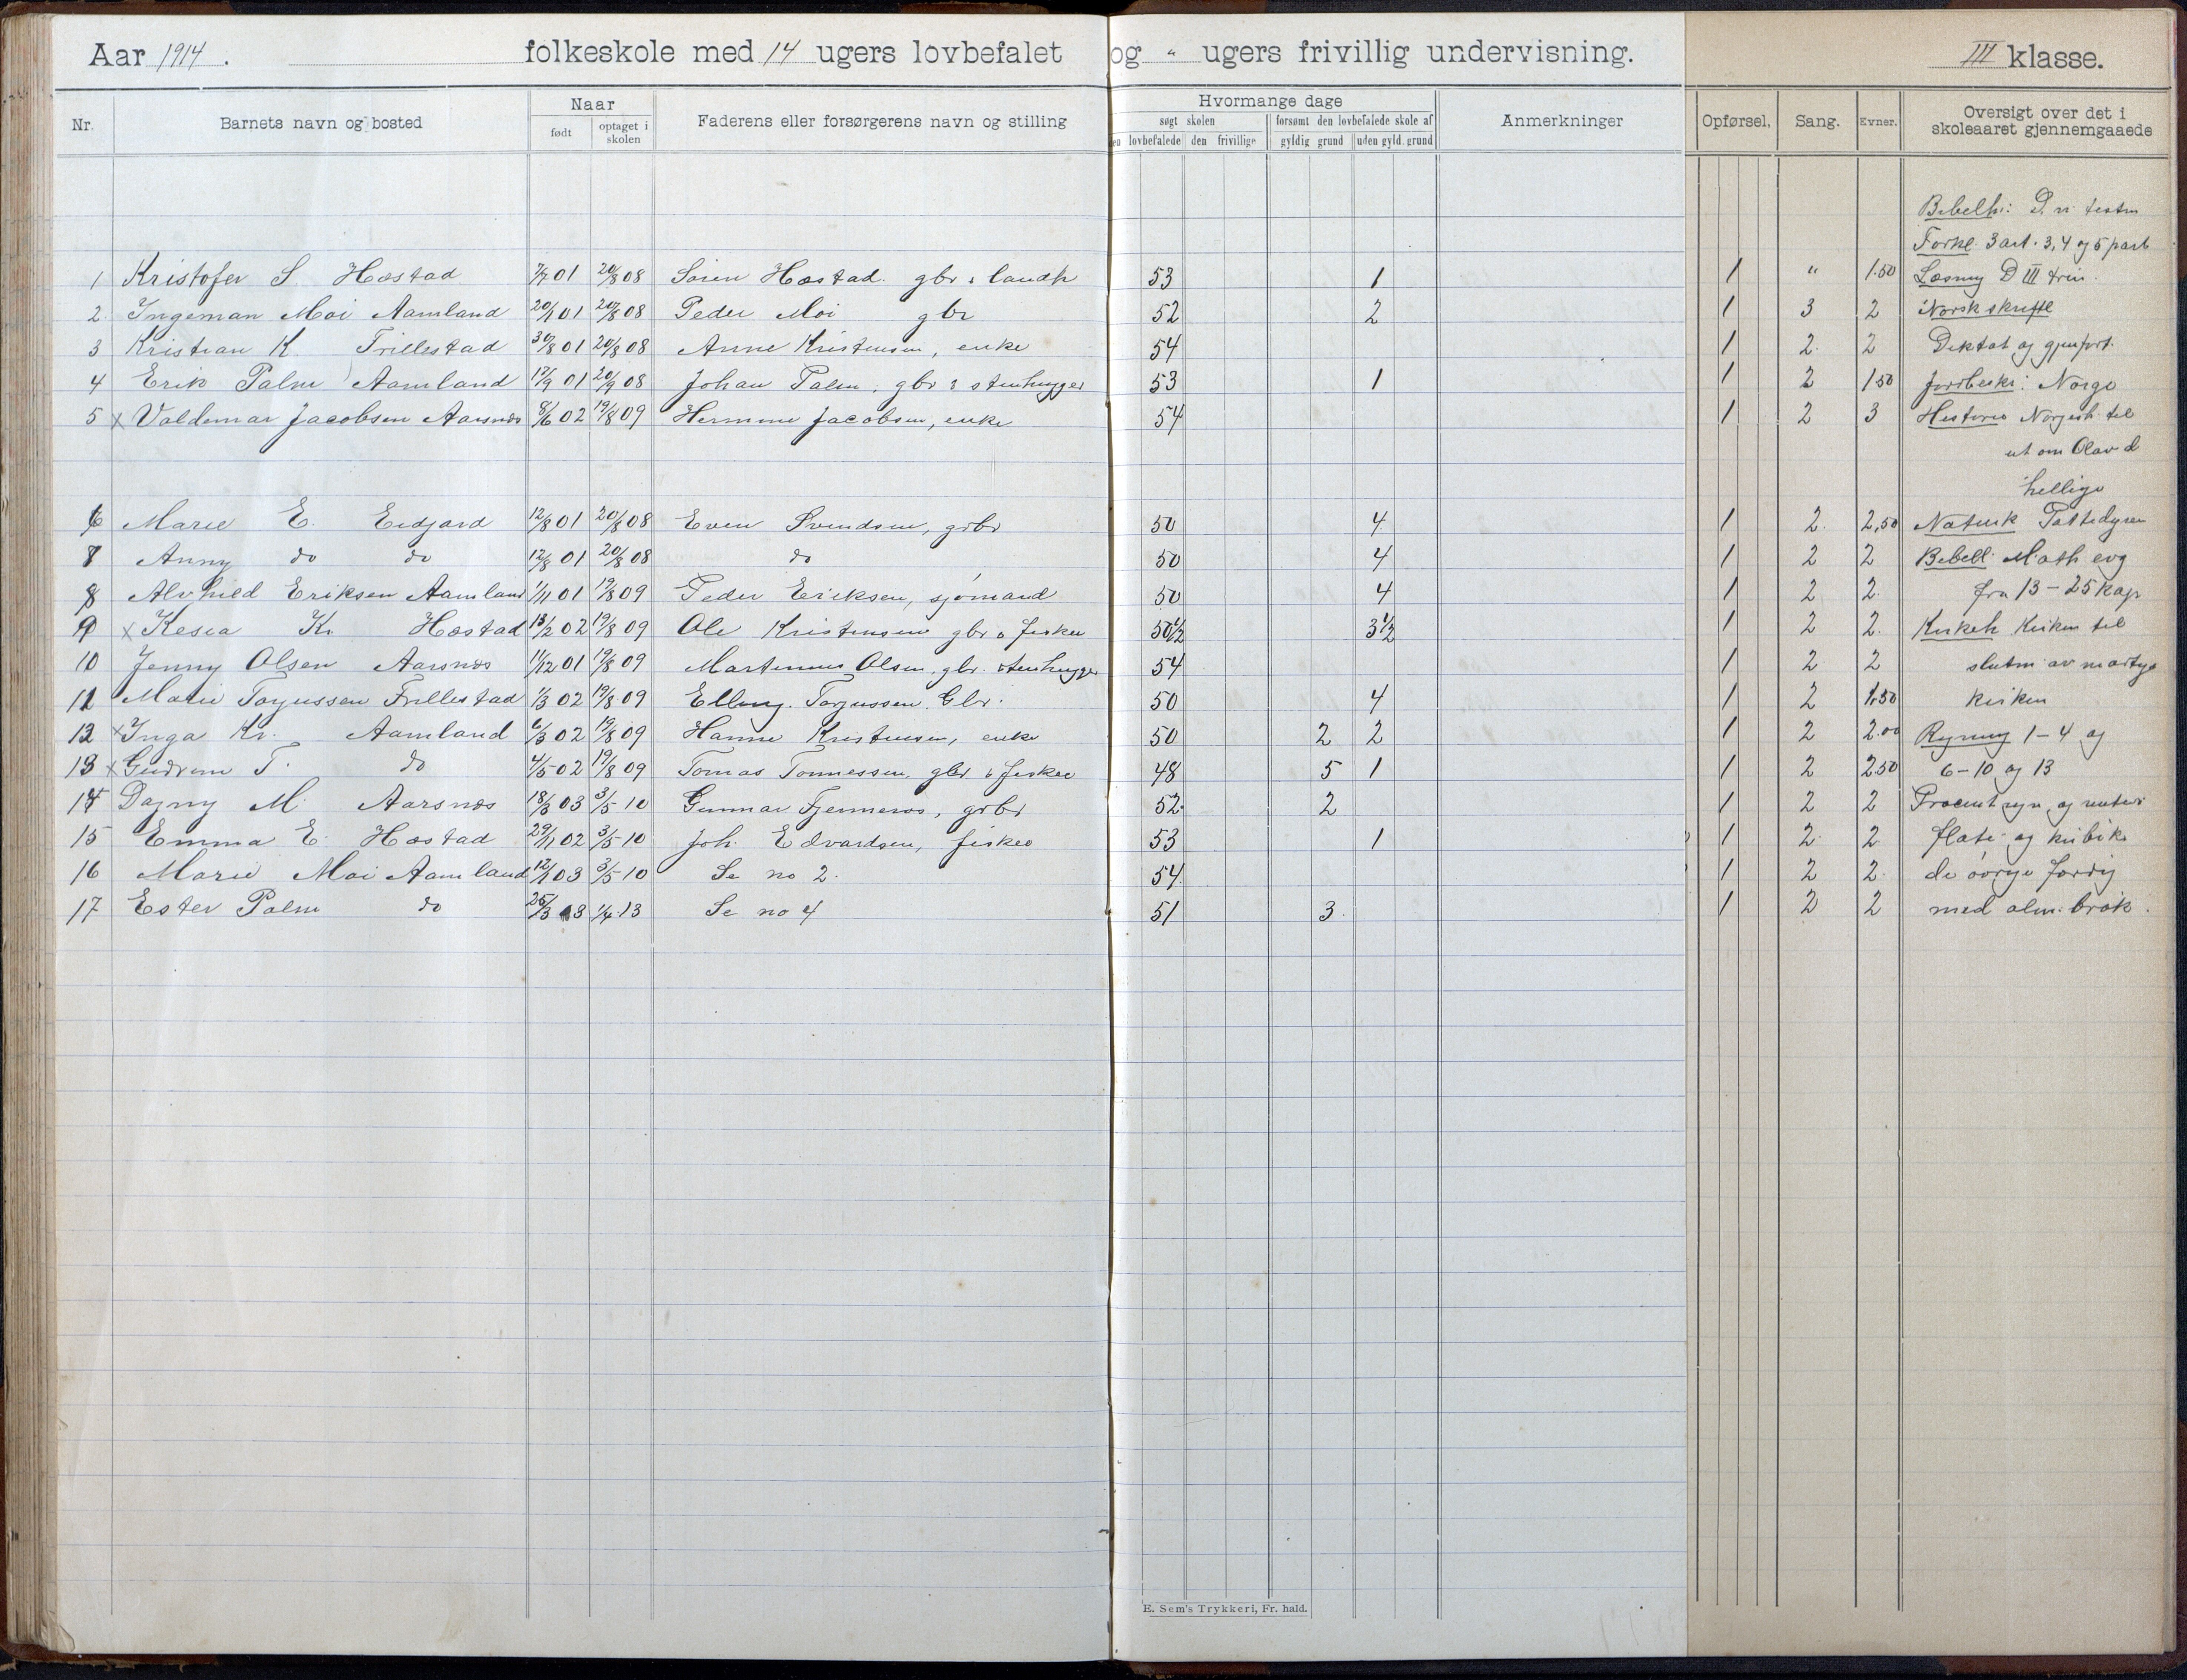 Aar 1914. folkeskole med 14 ugers lovbefalet og " ugers frivillig undervisning. III klasse.
Nr. Barnets navn og bosted Naar født optaget i skolen Faderens eller forsørgerens navn og stilling Hvormange dage søgt skolen den lovbefalede den frivillige forsømt den lovbefalede skole af gyldig grund uden gyld. grund Anmerkninger Opførsel. Sang. Evner. Oversigt over det i skoleaaret gjennemgaaede
Bibelh: D. n. testm
Forkl. 3 art. 3, 4 og 5 part
1 Kristofer S. Hæstad 7/7 01 20/8 08 Søren Hæstad gbr & landh 53 1 1 " 1.50 Læsning D III trin.
2 Ingeman Moi Aamland 20/1 01 20/8 08 Peder Moi gbr 52 2 1 3 2 Norsk skriftl
3 Kristian K. Trillestad 30/8 01 20/8 08 Anne Kristensen, enke 54 1 2 2 Diktat og gjenfort.
4 Erik Palm Aamland 17/9 01 20/9 08 Johan Palm, gbr & stenhugger 53 1 1 2 1 50 Jordbeskr: Norge
5 x Valdemar Jacobsen Aarsnæs 8/6 02 19/8 09 Hermine Jacobsen, enke 54 1 2 3 Historie Norgesh. til
ut om Olav d
hellige
6 Marie E. Eidjord 12/8 01 20/8 08 Even Svendsen, grbr 50 4 1 2. 2,50 Naturk Pattedyren
7 Anny do do 12/8 01 20/8 08 do 50 4 1 2 2 Bibell. Math evg
8 Alvhild Eriksen Aamland 1/11 01 19/8 09 Peder Eriksen, sjømand 50 4 1 2 2. fra 13 - 25 kap
9 x Kesia Kr. Hæstad 13/2 02 19/8 09 Ole Kristensen gbr & fisker 50 1/2 3 1/2 1 2 2. Kirkeh Kirken til
10 Jenny Olsen Aarsnæs 11/12 01 19/8 09 Martinius Olsen, gbr. stenhugger 54 1 2 2 slutn av martyr
11 Marie Torjussen Trillestad 1/3 02 19/8 09 Elling Torjussen Gbr. 50 4 1 2 1.50 kirken
12 x Inga Kr. Aamland 6/3 02 19/8 09 Hanne Kristensen, enke 50 2 2 1 2 2.00 Regning 1-4 og
13 x Gudrun T. do 4/5 02 19/8 09 Tomas Tønnessen, gbr & fisker 48 5 1 1 2 2.50 6-10 og 13
14 Dagny M. Aarsnæs 18/3 03 3/5 10 Gunnar Fjermeros, grbr 52 2 1 2 2 Procentregn. og renter
15 Emma E. Hæstad 29/11 02 3/5 10 Joh. Edvardsen, fisker 53 1 1 2 2 flate og kubik
16 Marie Moi Aamland 12/1 03 3/5 10 Se no 2. 54. 1 2 2. de øvrige færdig
17 Ester Palm do 25/3 03 1/4 13 Se no 4 51 3 1 2 2 med alm. brøk.
E. Sem's Trykkeri, Fr. hald.